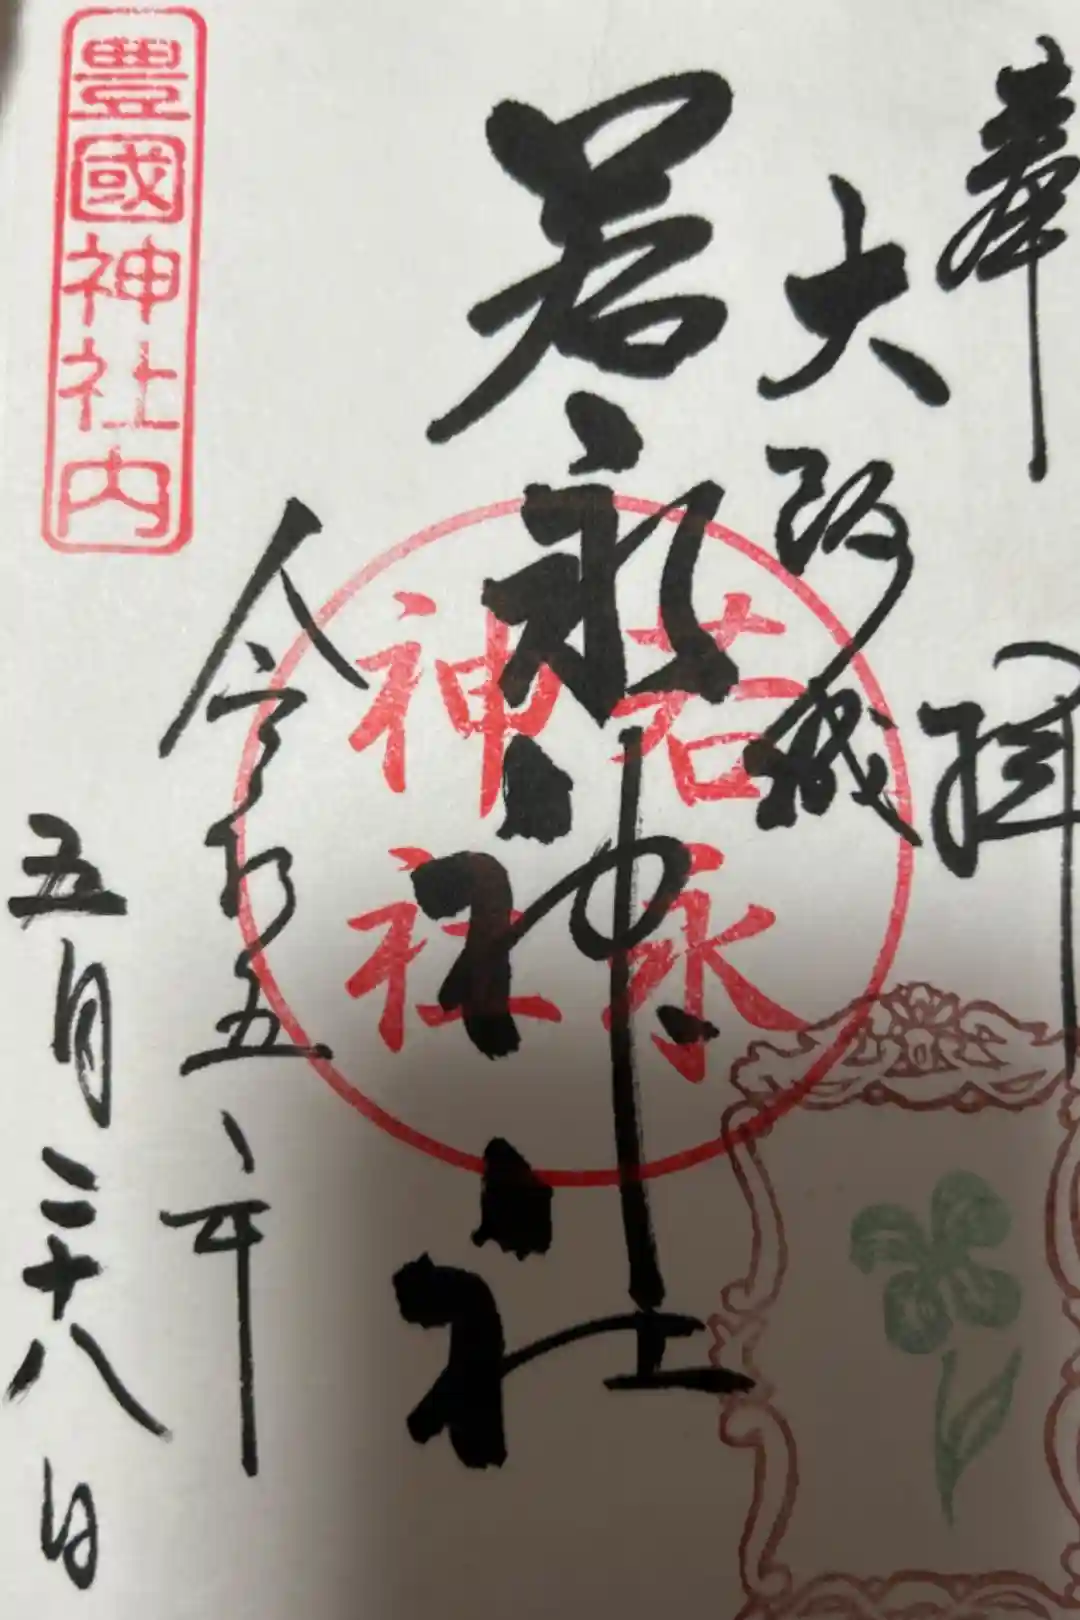 奉拝
大阪城
若永神社
若永
神社
令和五年
五月二十八日
豊國神社内